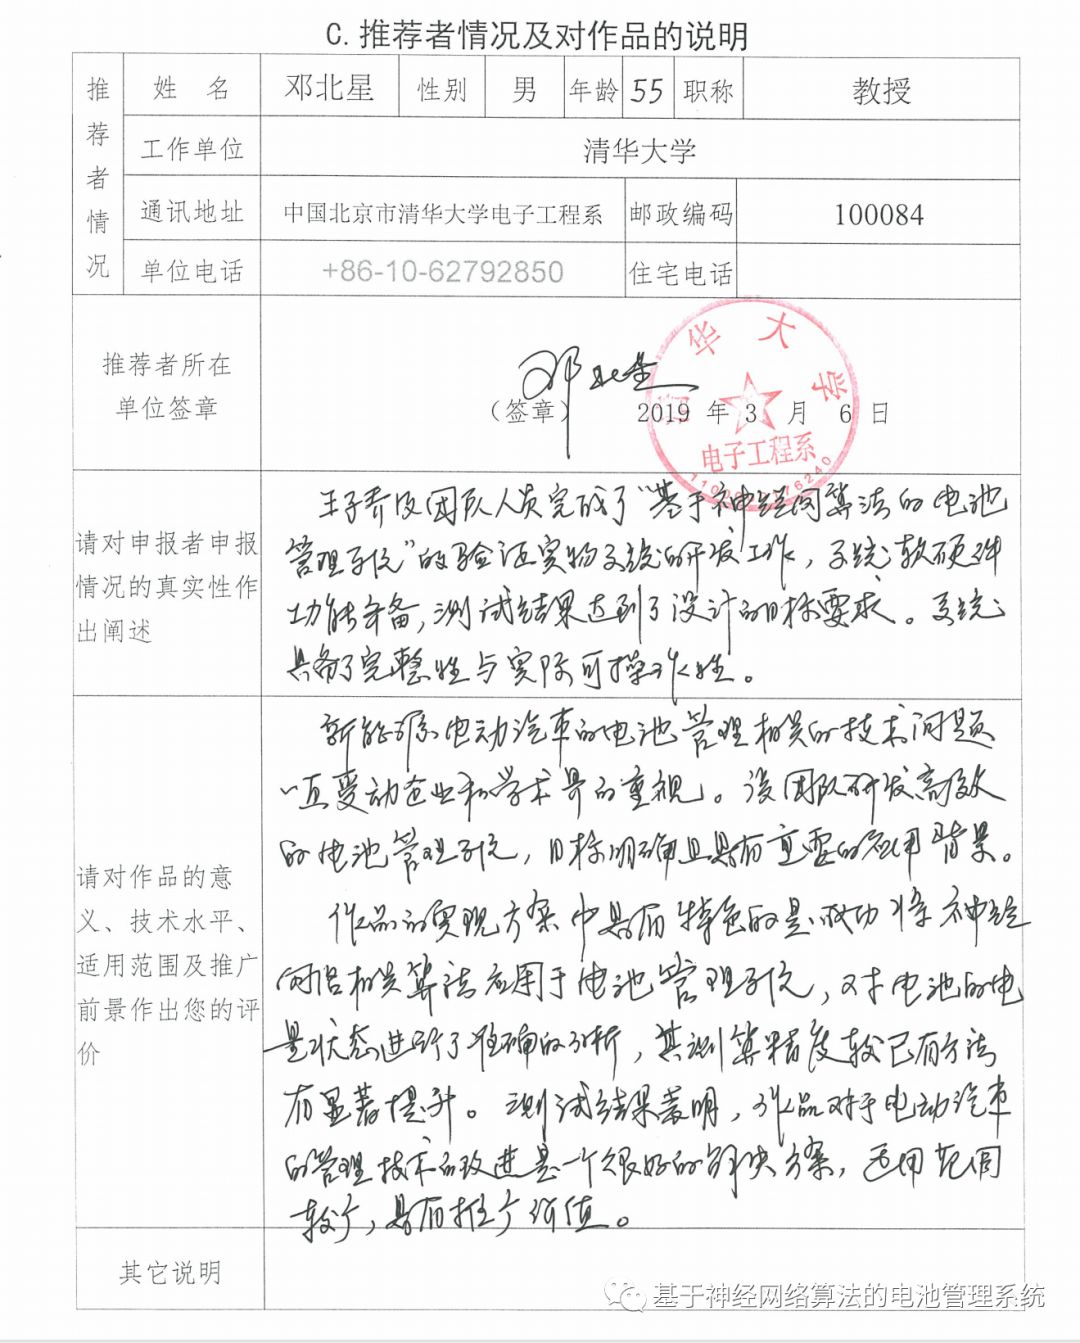 C.推荐者情况及对作品的说明
推荐者情况
姓 名 邓北星 性别 男 年龄 55 职称 教授
工作单位 清华大学
通讯地址 中国北京市清华大学电子工程系 邮政编码 100084
单位电话 +86-10-62792850 住宅电话
推荐者所在
单位签章
邓北星
(签章) 2019 年 3 月 6 日
清华大学
电子工程系
请对申报者申报
情况的真实性作
出阐述
王子乔及团队人员完成了"基于神经网算法的电池
管理系统"的验证实物系统的研发工作，系统软硬件
功能齐备，测试结果达到了设计的目标要求。系统
具备了完整性与实际可操作性。
请对作品的意
义、技术水平、
适用范围及推广
前景作出您的评
价
新能源电动汽车的电池管理相关的技术问题
一直受动企业和学术界的重视。该团队研发高效
的电池管理系统，目标明确且具有重要的应用背景。
作品的实现方案中具有特色的是成功将神经
网络相关算法应用于电池管理系统，对电池的电
量状态进行了准确的分析，其测算精度较已有方法
有显著提升。测试结果表明，作品对于电动汽车
的管理技术的改进是一个很好的解决方案，适用范围
较广，具有推广价值。
其它说明
基于神经网络算法的电池管理系统